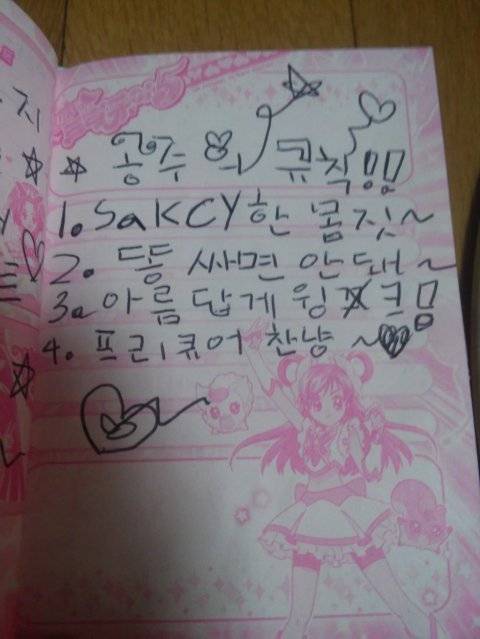 공주의 규칙!!
1. SaKCY한 몸짓~
2. 똥 싸면 안돼~
3. 아름답게 윙크!!
4. 프리큐어 찬냥~